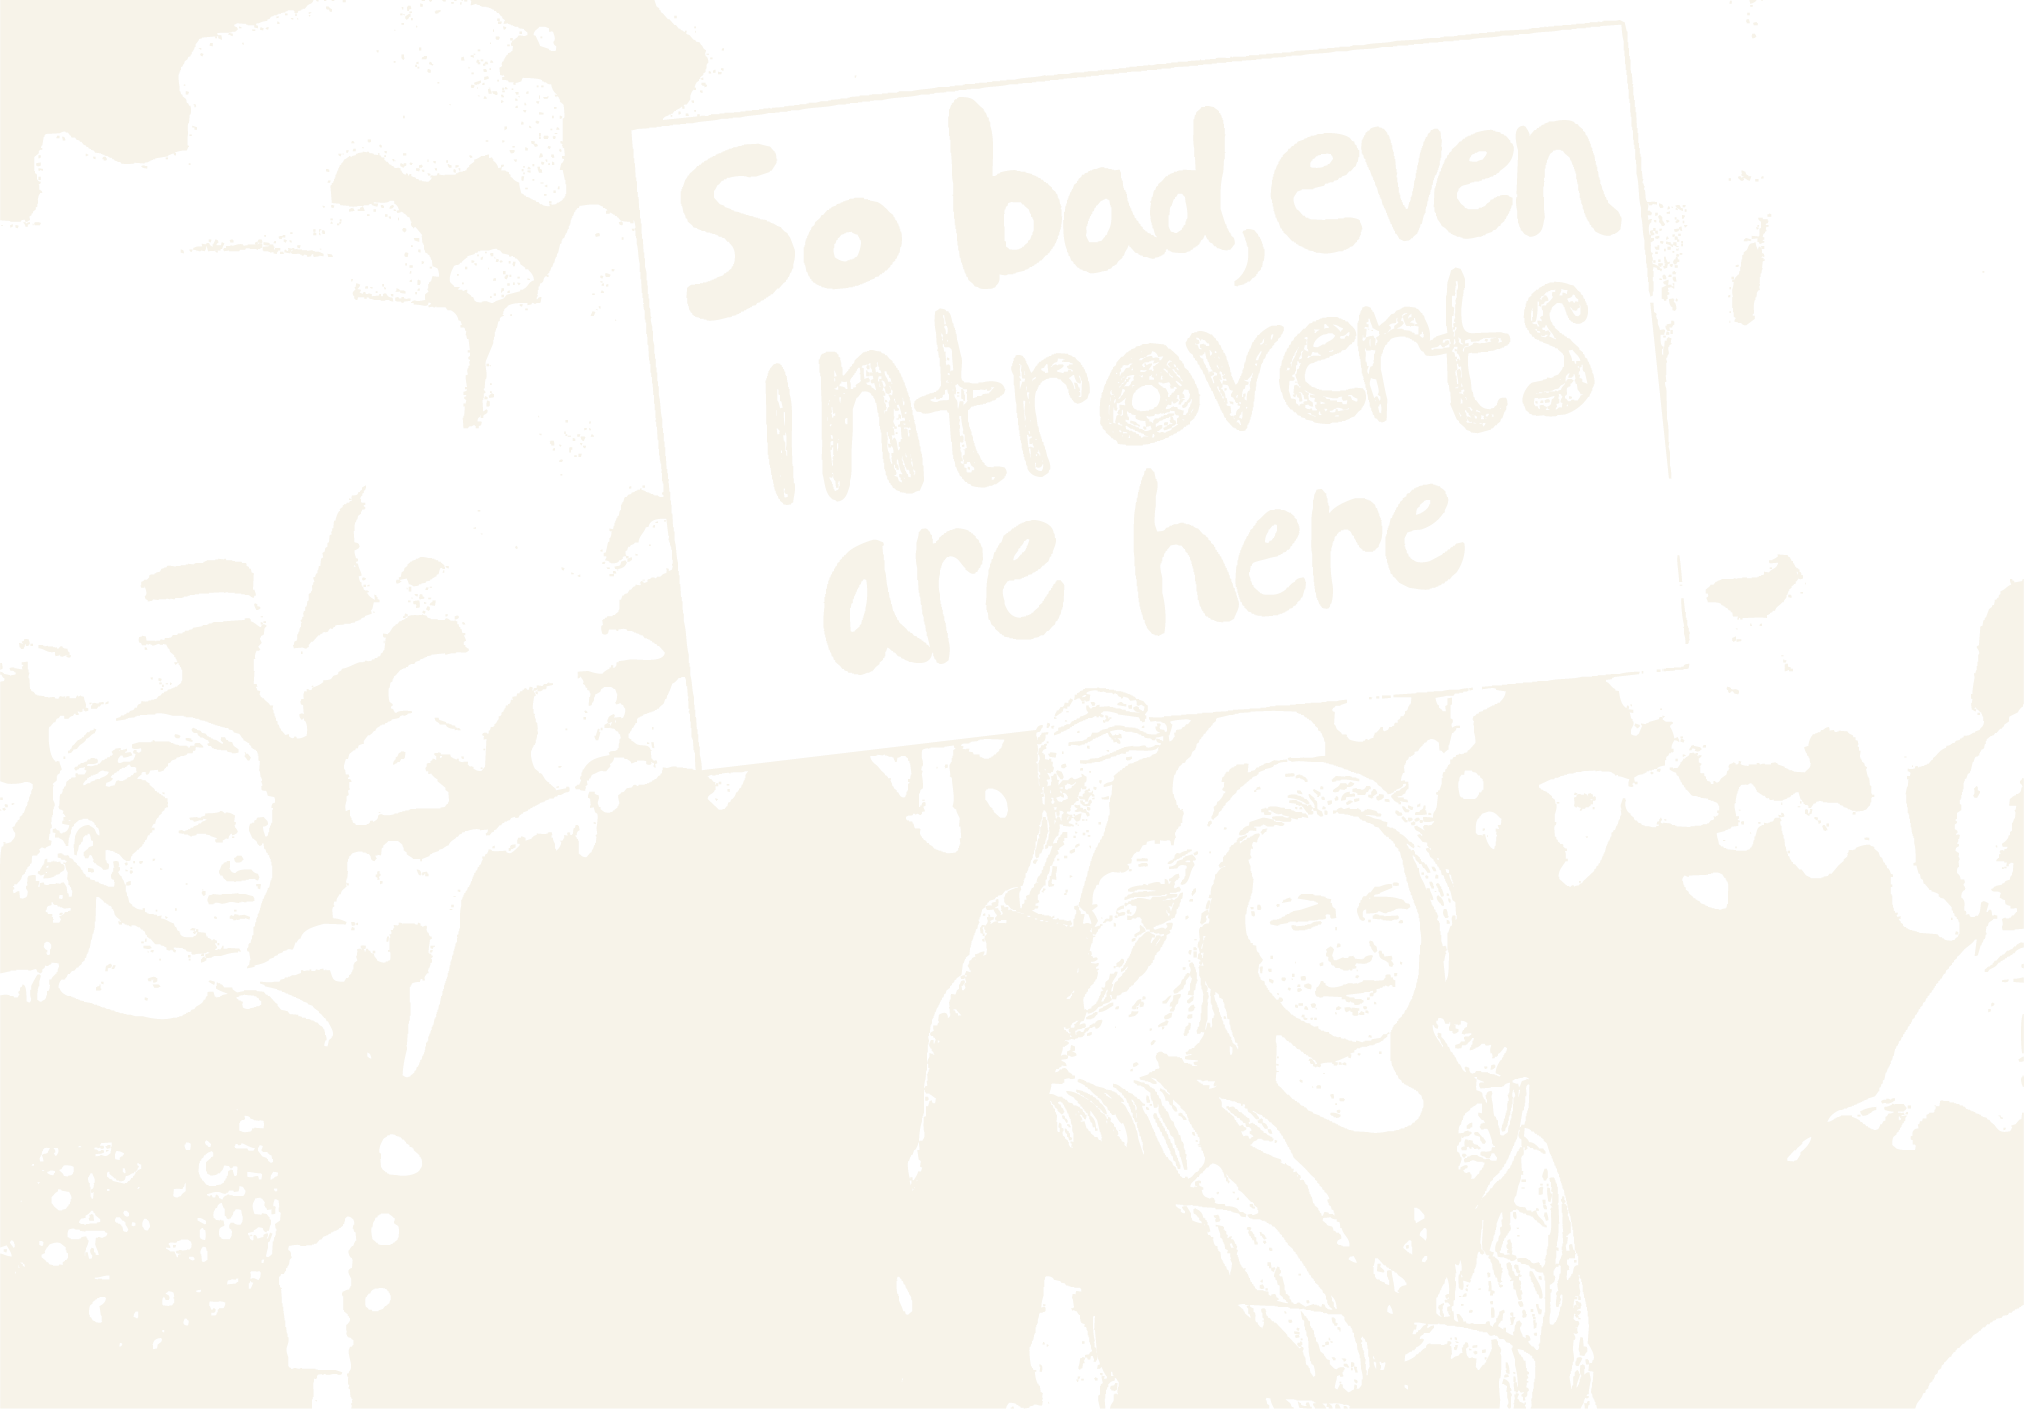 So bad, even
Introverts
are here